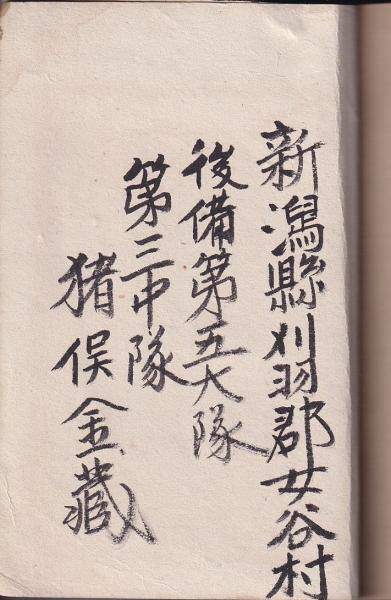 新潟縣刈羽郡女谷村
後備第五大隊
第三中隊
猪俣金藏